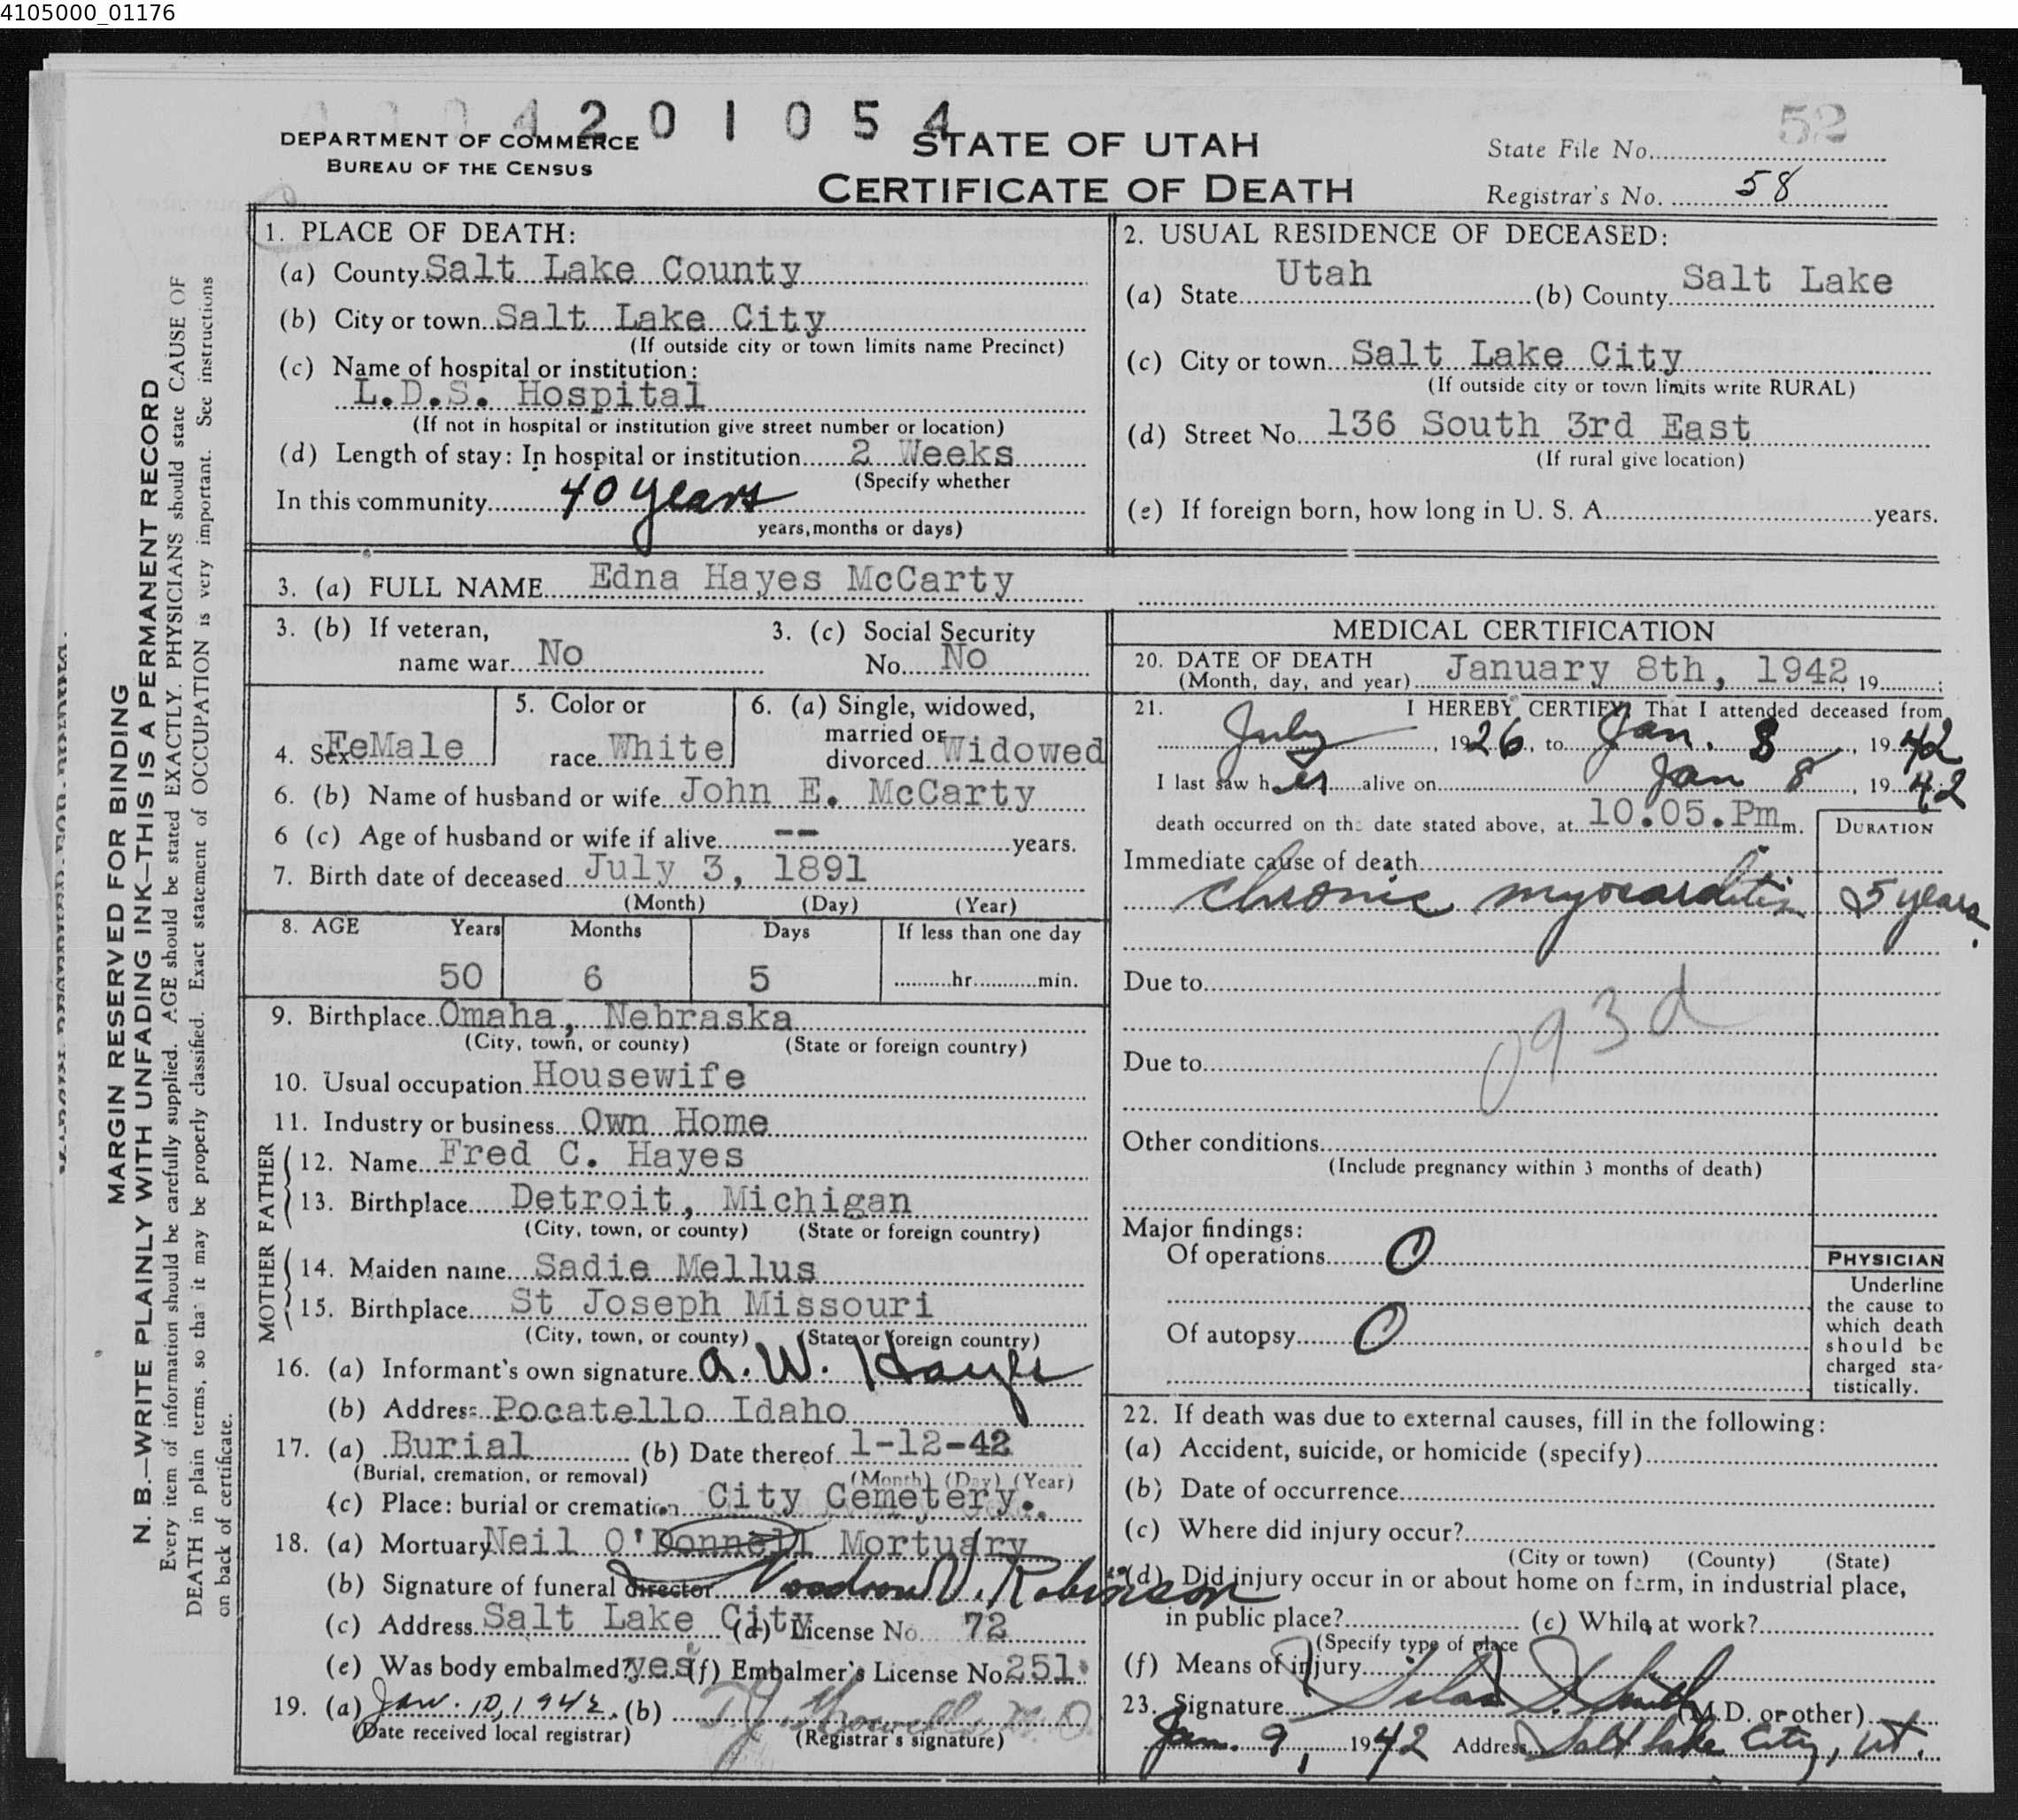 4105000_01176
4201054
DEPARTMENT OF COMMERCE
BUREAU OF THE CENSUS
STATE OF UTAH
CERTIFICATE OF DEATH
52
State File No.
Registrar's No. 58
MARGIN RESERVED FOR BINDING
N. B.—WRITE PLAINLY WITH UNFADING INK—THIS IS A PERMANENT RECORD
Every item of information should be carefully supplied. AGE should be stated EXACTLY. PHYSICIANS should state CAUSE OF
DEATH in plain terms, so that it may be properly classified. Exact statement of OCCUPATION is very important. See instructions
on back of certificate.
1. PLACE OF DEATH:
(a) County Salt Lake County
(b) City or town Salt Lake City
(If outside city or town limits name Precinct)
(c) Name of hospital or institution:
L.D.S. Hospital
(If not in hospital or institution give street number or location)
(d) Length of stay: In hospital or institution 2 Weeks
(Specify whether
In this community 40 years
years, months or days)
2. USUAL RESIDENCE OF DECEASED:
(a) State Utah (b) County Salt Lake
(c) City or town Salt Lake City
(If outside city or town limits write RURAL)
(d) Street No. 136 South 3rd East
(If rural give location)
(e) If foreign born, how long in U. S. A. years.
3. (a) FULL NAME Edna Hayes McCarty
3. (b) If veteran,
name war No
3. (c) Social Security
No. No
4. Sex FeMale
5. Color or
race White
6. (a) Single, widowed,
married or
divorced Widowed
6. (b) Name of husband or wife John E. McCarty
6 (c) Age of husband or wife if alive -- years.
7. Birth date of deceased July 3, 1891
(Month) (Day) (Year)
8. AGE Years Months Days If less than one day
50 6 5 hr. min.
9. Birthplace Omaha, Nebraska
(City, town, or county) (State or foreign country)
10. Usual occupation Housewife
11. Industry or business Own Home
FATHER
12. Name Fred C. Hayes
13. Birthplace Detroit, Michigan
(City, town, or county) (State or foreign country)
MOTHER
14. Maiden name Sadie Mellus
15. Birthplace St Joseph Missouri
(City, town, or county) (State or foreign country)
16. (a) Informant's own signature A. W. Hayes
(b) Address Pocatello Idaho
17. (a) Burial (b) Date thereof 1-12-42
(Burial, cremation, or removal) (Month) (Day) (Year)
(c) Place: burial or cremation City Cemetery.
18. (a) Mortuary Neil O'Donnell Mortuary
(b) Signature of funeral director Woodrow V. Robinson
(c) Address Salt Lake City (d) License No. 72
(e) Was body embalmed? yes (f) Embalmer's License No. 251
19. (a) Jan. 10, 1942. (b) T.J. Howells M.D.
(Date received local registrar) (Registrar's signature)
MEDICAL CERTIFICATION
20. DATE OF DEATH
(Month, day, and year) January 8th, 1942 19 ;
21. I HEREBY CERTIFY, That I attended deceased from
July, 1926, to Jan. 8, 1942
I last saw her alive on Jan 8, 1942;
death occurred on the date stated above, at 10.05.Pm m.
DURATION
Immediate cause of death
chronic myocarditis 5 years.
Due to
093d
Due to
Other conditions
(Include pregnancy within 3 months of death)
Major findings:
Of operations 0
Of autopsy 0
PHYSICIAN
Underline
the cause to
which death
should be
charged sta-
tistically.
22. If death was due to external causes, fill in the following:
(a) Accident, suicide, or homicide (specify)
(b) Date of occurrence
(c) Where did injury occur?
(City or town) (County) (State)
(d) Did injury occur in or about home on farm, in industrial place,
in public place? (e) While at work?
(Specify type of place
(f) Means of injury
23. Signature Silas S. Smith (M.D. or other)
Jan. 9, 1942 Address Salt Lake City, Ut.